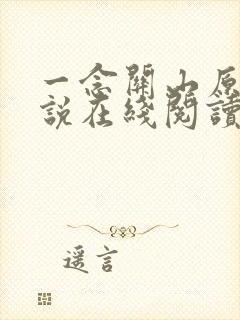 一念關山原
說在綫閱讀
遥言